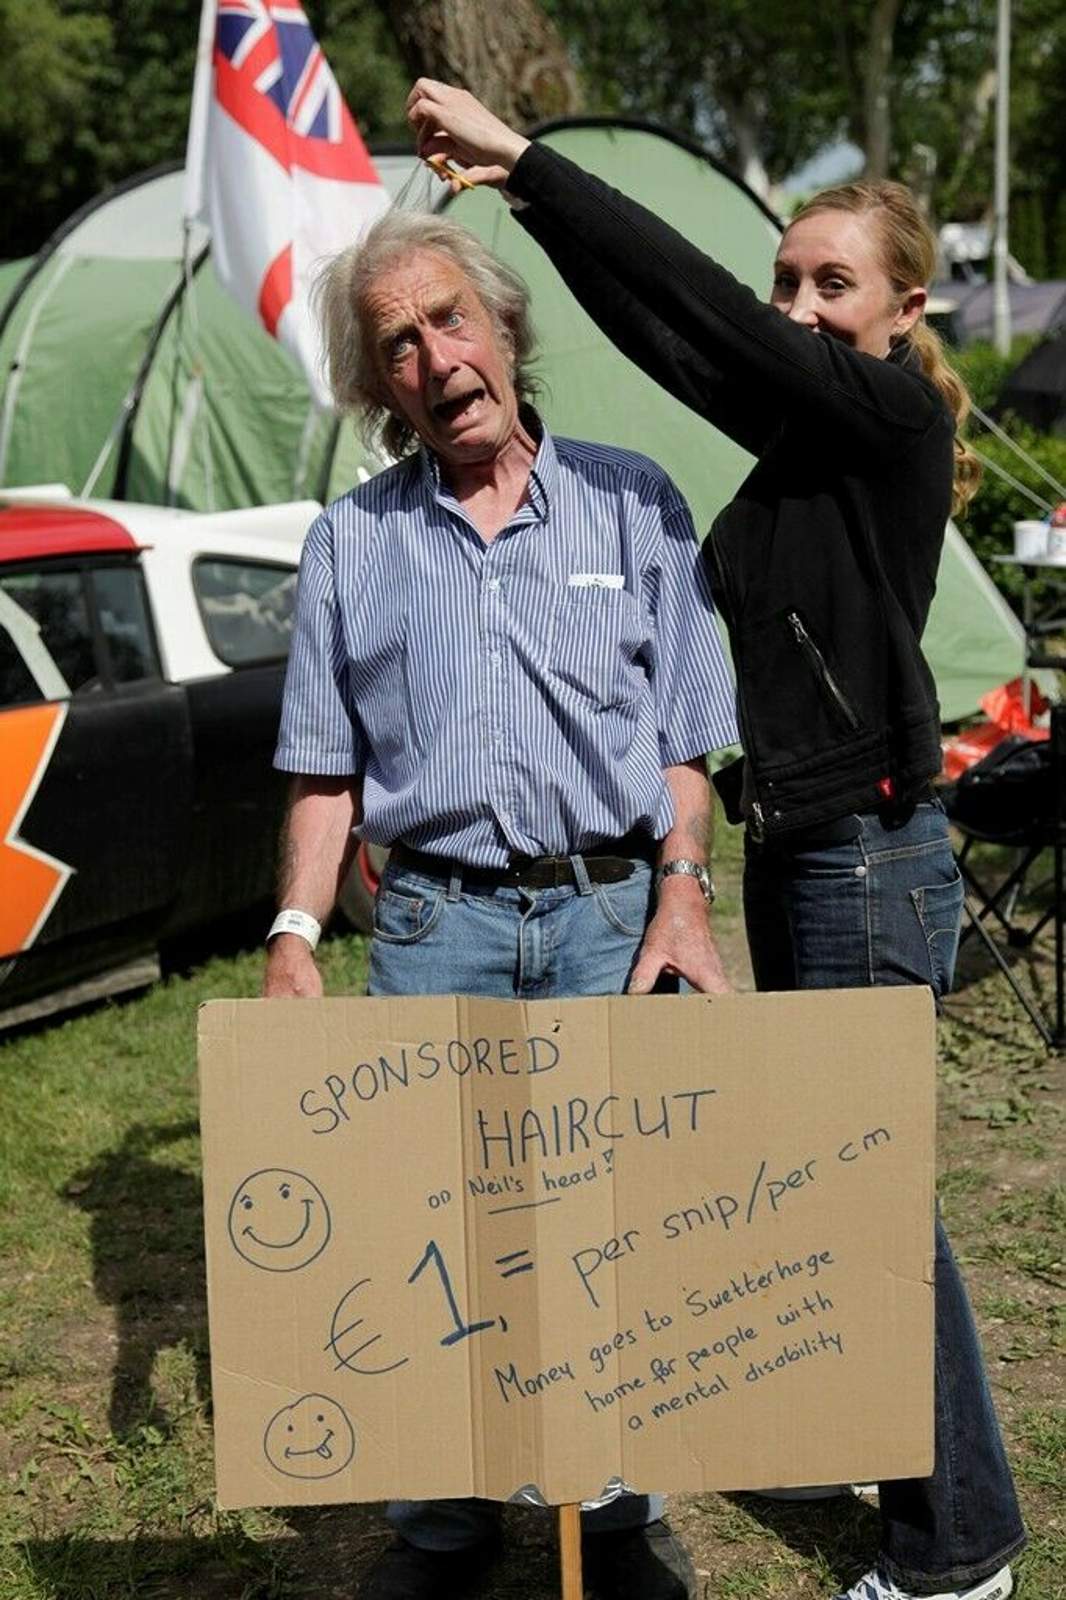 SPONSORED
HAIRCUT
on Neil's head!
€ 1,= per snip/per cm
Money goes to Swetterhage
home for people with
a mental disability